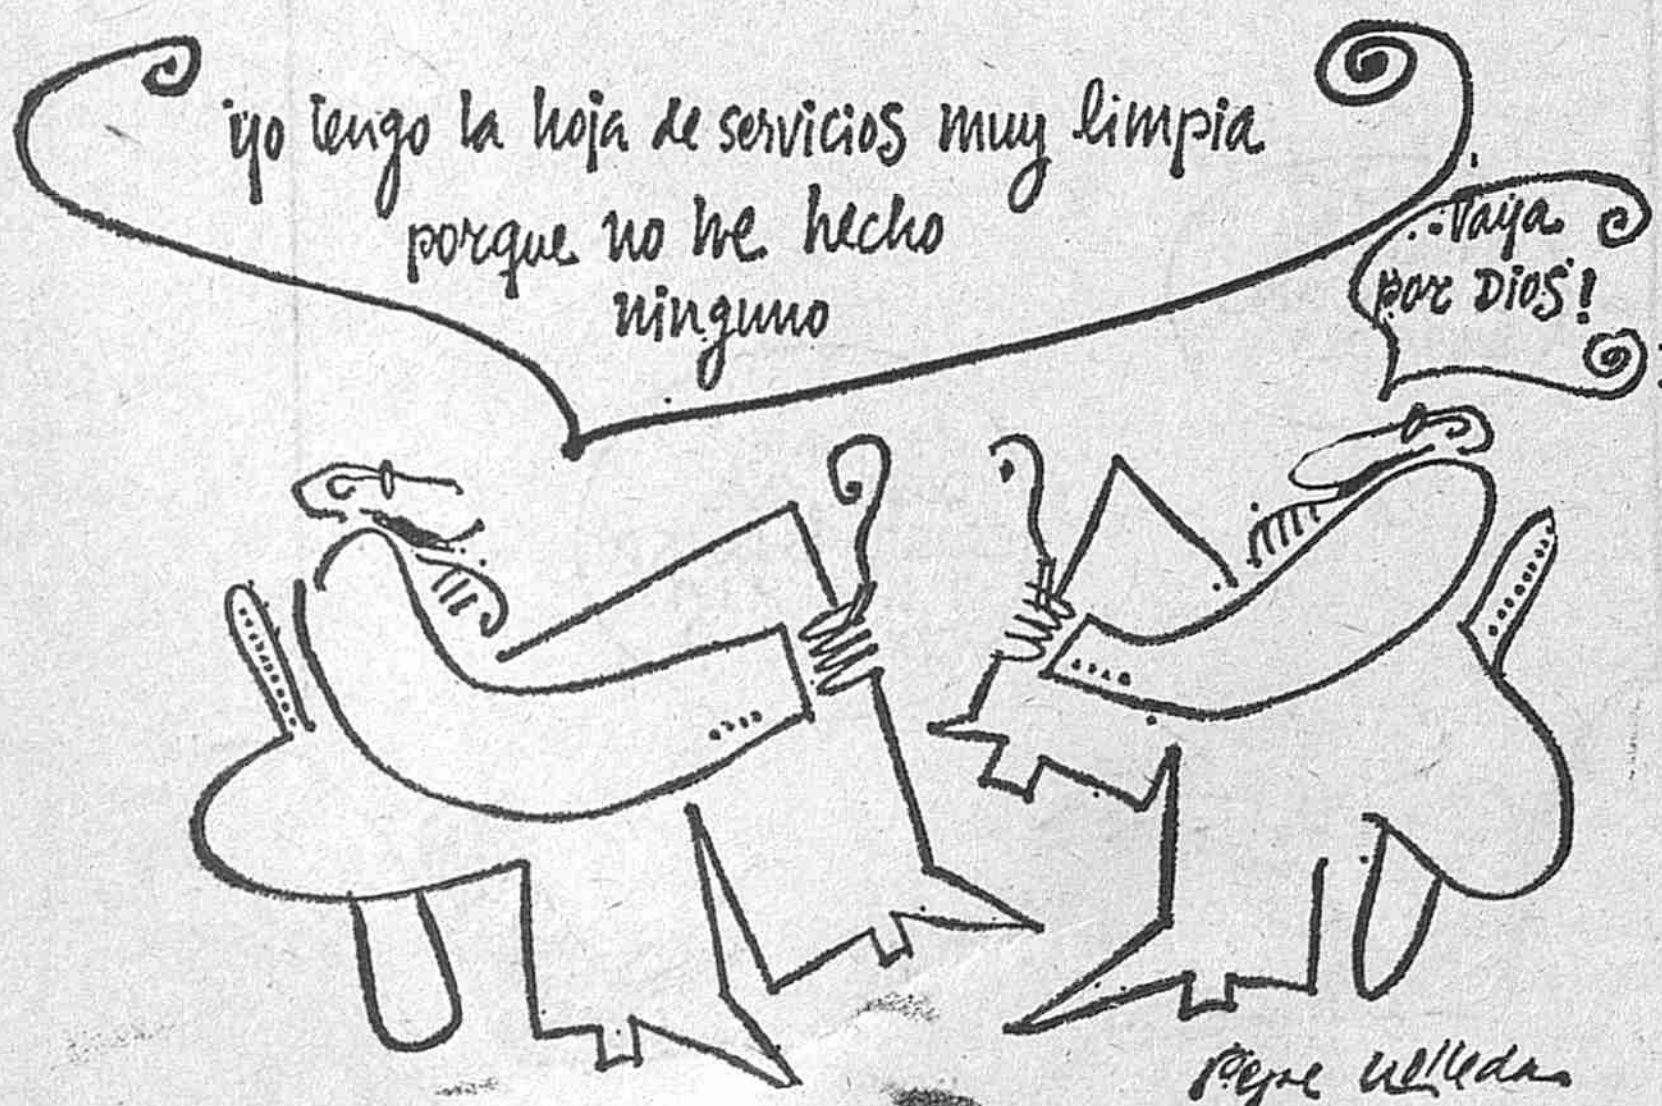 yo tengo la hoja de servicios muy limpia
porque no he hecho
ninguno
Vaya
por Dios!
Pepe